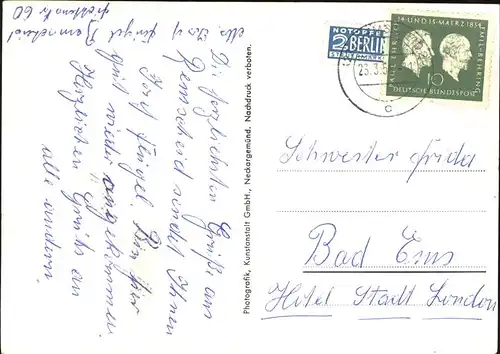 Die herzlichsten Grüße aus
Remscheid sendet Ihnen
Bin hier
gut wieder angekommen.
Herzlichen Gruß an
alle andern.
Remscheid
60
NOTOPFER
2 BERLIN
STEUERMARKE
14. UND 15. MAERZ 1854
PAUL EHRLICH
EMIL BEHRING
10
DEUTSCHE BUNDESPOST
23.3.5
c
Photografik, Kunstanstalt GmbH., Neckargemünd. Nachdruck verboten.
Schwester Frieda
Bad Ems
Hotel Stadt London